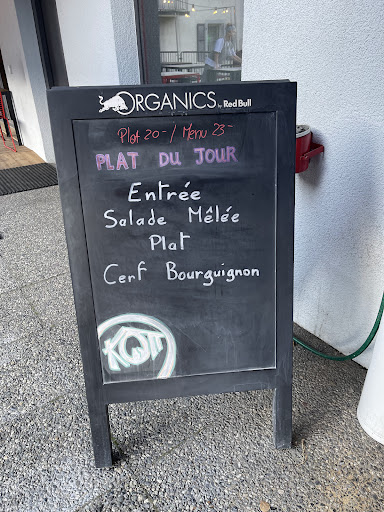 ORGANICS by Red Bull
Plat 20.- / Menu 23.-
PLAT DU JOUR
Entrée
Salade Mêlée
Plat
Cerf Bourguignon